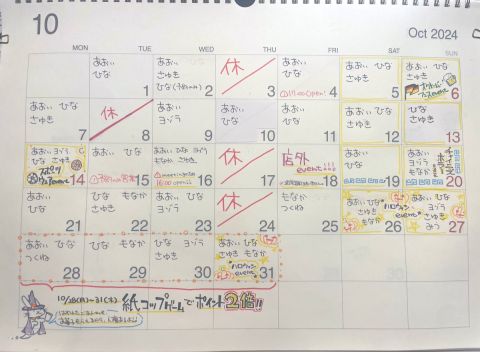 10
Oct 2024
MON TUE WED THU FRI SAT SUN
あおい
ひな
1
あおい
さゆき
2
休
3
あおい
ひな
4
あおい
さゆき
5
あおい ひな
さゆき
6
あおい ひな
さゆき
7
休
8
あおい
ヨゾラ
9
あおい
ひな
10
あおい
ひな
11
あおい
さゆき
12
ひな
さゆき
13
あおい ヨゾラ
ひな さゆき
14
あおい
ひな
15
16
休
17
店外
event
18
あおい
ひな
19
あおい
ヨゾラ
さゆき
20
あおい
ひな
21
ひな もなか
さゆき
22
あおい
ヨゾラ
23
休
24
もなか
つくね
25
あおい ひな
さゆき
もなか
ハロウィン
event
26
あおい
ヨゾラ ひな
さゆき
みつ
ハロウィン
event
27
あおい ひな
つくね
28
ひな もなか
29
ひな ヨゾラ
さゆき
30
あおい ひな
さゆき もなか
ハロウィン
event
31
10/28(月)〜31(木) 紙コップゲームでポイント2倍!!